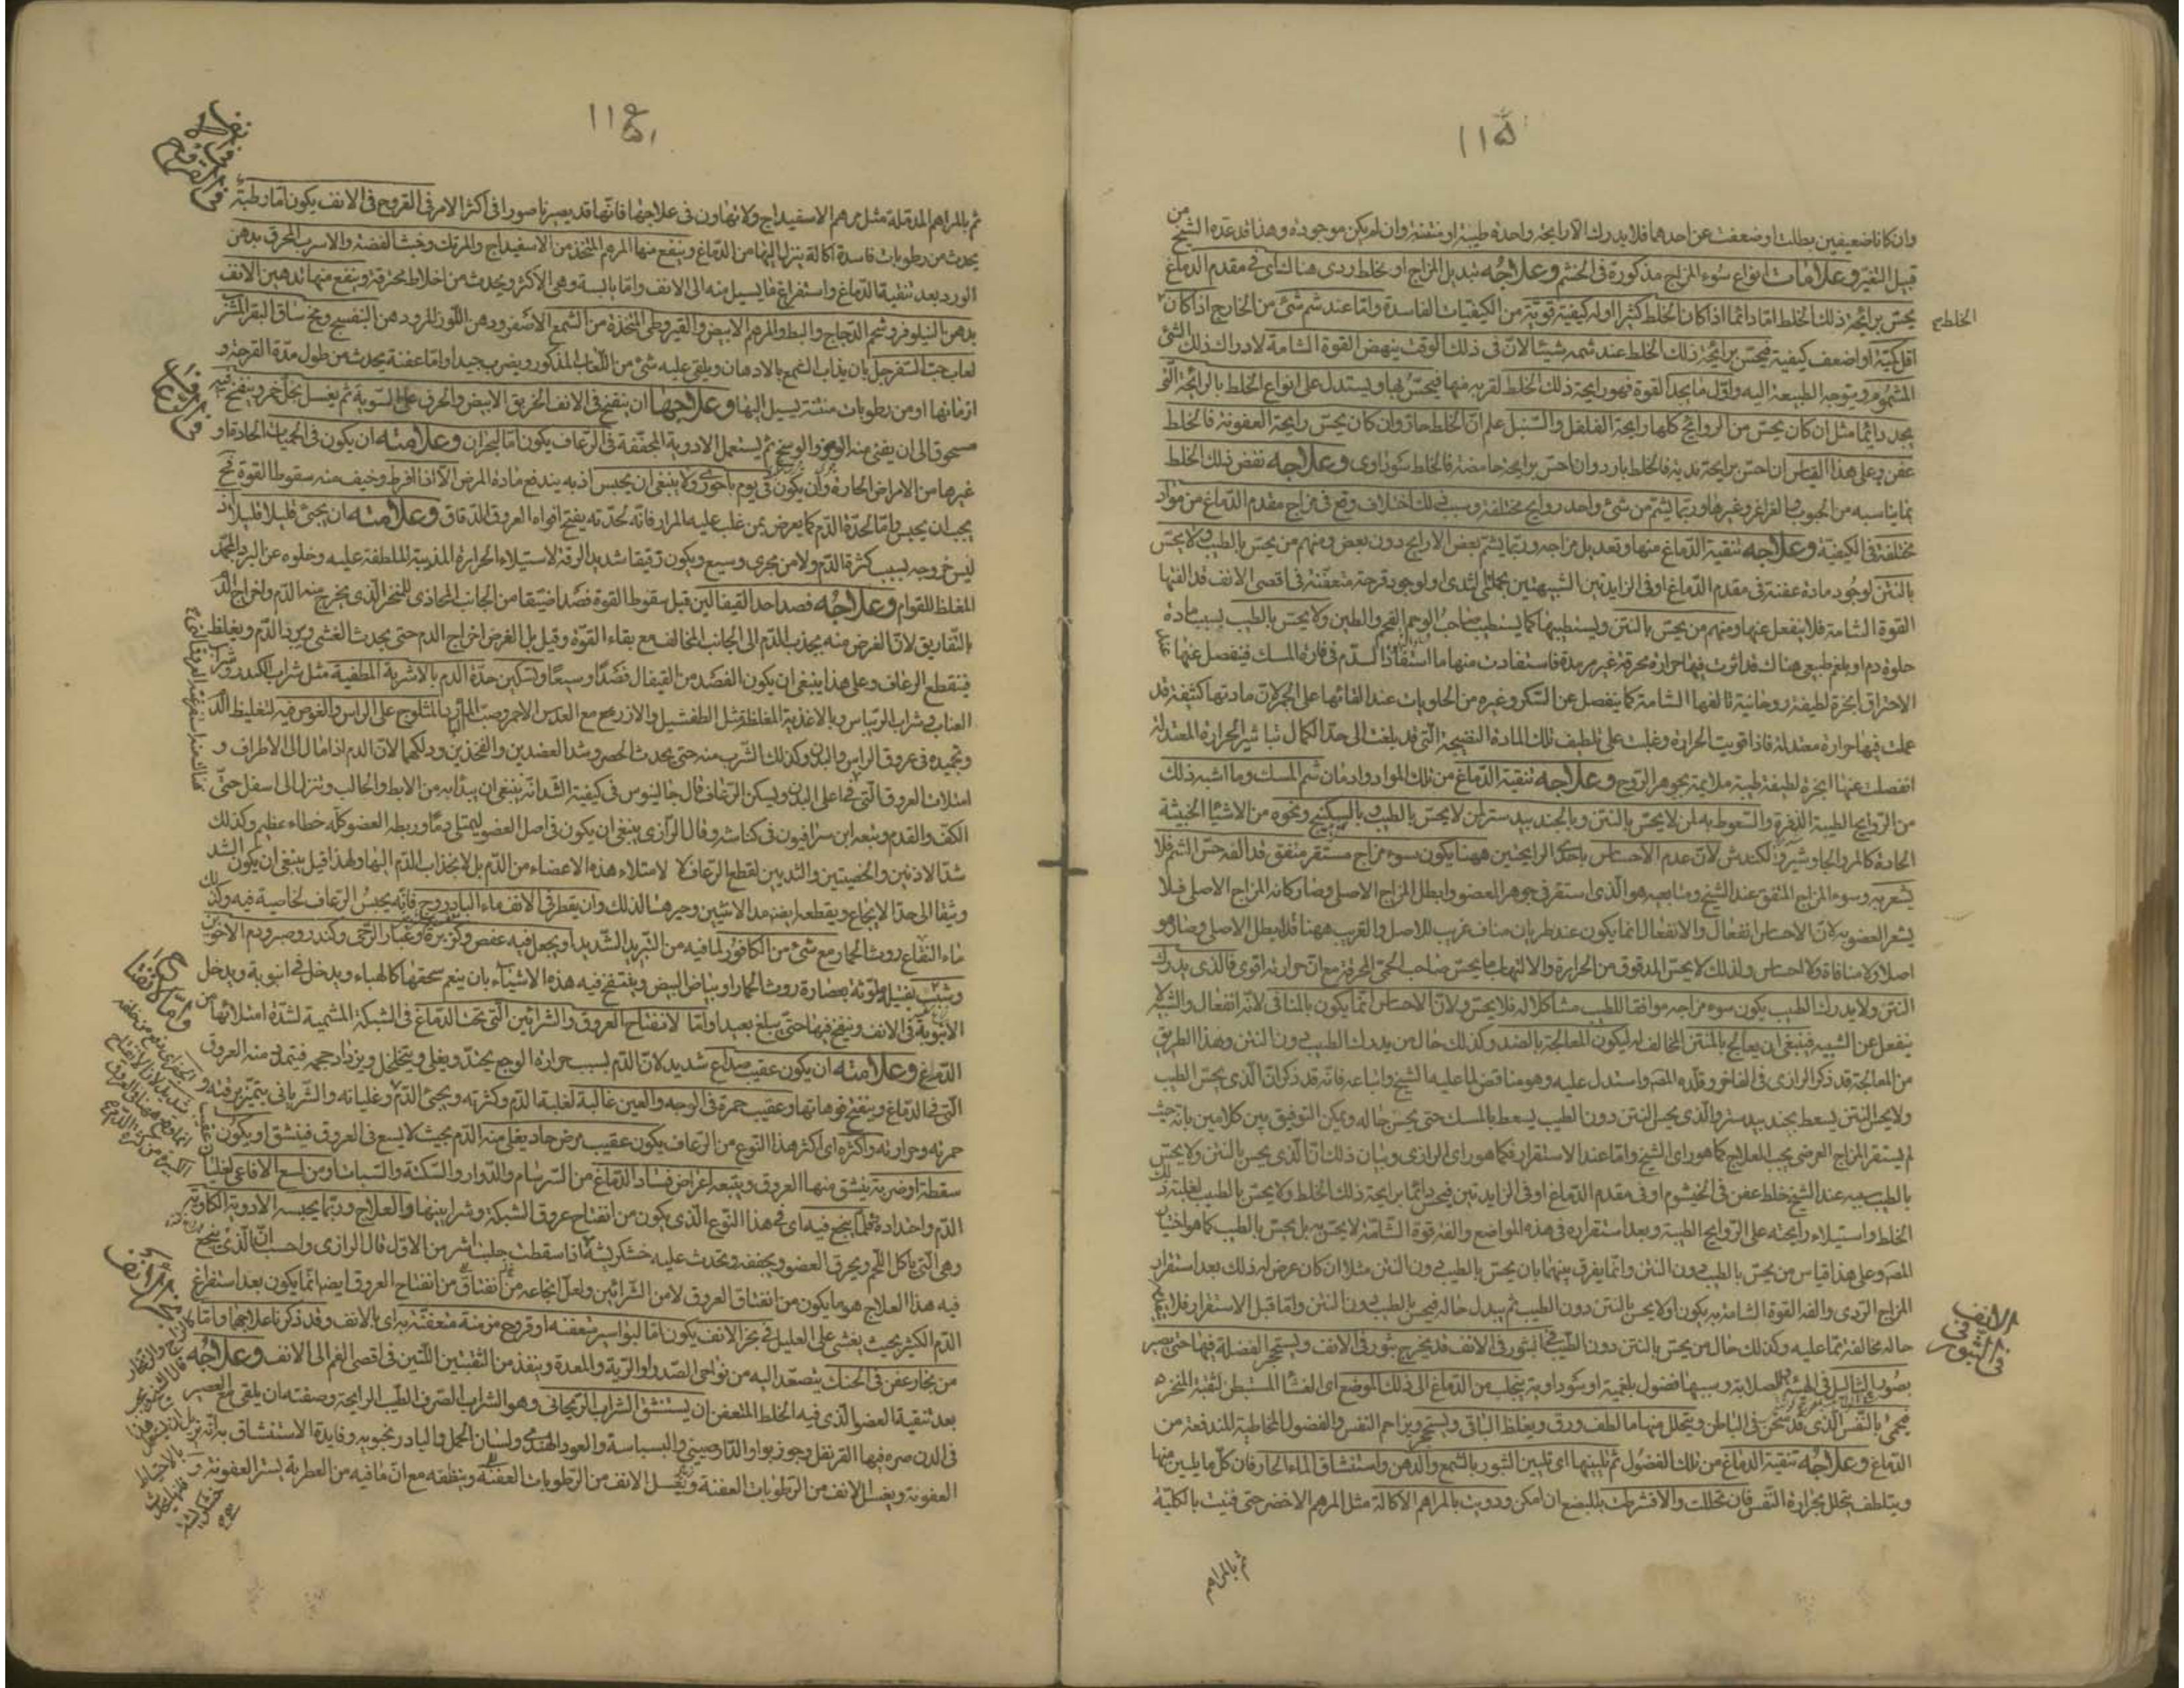 ١١٥
وان كانا ضعيفين بطلت او ضعفت عن احدهما فلا يدرك الا رايحة واحدة طيبة او منتنة وان لم يكن موجودة وهذا قد عده الشيخ من
قبيل التغير وعلامات انواع سوء المزاج مذكورة فى الخشم وعلاجه تبديل المزاج او بخلط ردى هناك اى فى مقدم الدماغ
يحس برايحة ذلك الخلط اما دائما اذا كان الخلط كثيرا او له كيفية قوية من الكيفيات الفاسدة واما عند شم شئ من الخارج اذا كان
الخلط
اقل كمية او اضعف كيفية فيحس برايحة ذلك الخلط عند شمه شيئا لان فى ذلك الوقت ينهض القوة الشامة لادراك ذلك الشئ
المشموم ويتوجه الطبيعة اليه واول ما يجد القوة فهو رايحة ذلك الخلط لقربه منها فيحس بها ويستدل على انواع الخلط بالرايحة التى
يجد دائما مثل ان كان يحس من الروائح كلها رايحة الفلفل والسنبل علم ان الخلط حاد وان كان يحس رايحة العفونة فالخلط
عفن وعلى هذا القياس ان احس برايحة ندية فالخلط بارد وان احس برايحة حامضة فالخلط سوداوى وعلاجه نفض ذلك الخلط
بما يناسبه من الحبوب والغراغر وغيرها وربما يشتم من شئ واحد روايح مختلفة وسبب ذلك اختلاف وقع فى مزاج مقدم الدماغ من مواد
مختلفة فى الكيفية وعلاجه تنقية الدماغ منها وتعديل مزاجه وربما يشتم بعض الارايح دون بعض ومنهم من يحس بالطيب ولا يحس
بالنتن لوجود مادة عفنة فى مقدم الدماغ او فى الزايدتين الشبيهتين بحلمتى الثدى او لوجود قرحة متعفنة فى اقصى الانف قد الفتها
القوة الشامة فلا ينفعل عنها ومنهم من يحس بالنتن ويستطيبها كما يستطيب صاحب الوحم الفحم والطين ولا يحس بالطيب بسبب مادة
حلوة دم او بلغم طبيعى هناك قد اثرت فيها حرارة محرقة غير مرمدة فاستفادت منها ما استفاد الدم فى فارة المسك فينفصل عنها
الاحتراق ابخرة لطيفة روحانية تالفها الشامة كما ينفصل عن السكر وغيره من الحلويات عند القائها على الجمر لان مادتها كثيفة قد
عملت فيها حرارة معتدلة فاذا قويت الحرارة وغلبت على تلطيف تلك المادة النضيجة التى قد بلغت الى حد الكمال بتاثير الحرارة المعتدلة
انفصلت عنها ابخرة لطيفة طيبة ملايمة بجوهر الروح وعلاجه تنقية الدماغ من تلك المواد وادمان شم المسك وما اشبه ذلك
من الروايح الطيبة الذفرة والسعوط به لمن لا يحس بالنتن وبالجند بيدستر لمن لا يحس بالطيب و بالسكبينج ونحوه من الاشياء الخبيثة
الحادة كالمر والجاوشير والكندش لان عدم الاحساس باحدى الرايحتين ههنا يكون سوء مزاج مستقر متفق قد الفه حس الشم فلا
يشعر به وسوء المزاج المتفق عند الشيخ ومتابعيه هو الذى استقر فى جوهر العضو وابطل المزاج الاصلى وصار كانه المزاج الاصلى فلا
يشعر العضو به لان الاحساس انفعال والانفعال انما يكون عند طريان مناف غريب للاصل والقريب ههنا قد ابطل الاصلى وصار هو
اصلا ولا منافاة ولا احساس ولذلك لا يحس المدقوق من الحرارة والالتهاب ما يحس صاحب الحمى المحرقة مع ان حرارته اقوى فالذى يدرك
النتن ولا يدرك الطيب يكون سوء مزاجه موافقا للطيب مشاكلا له فلا يحس ولان الاحساس انما يكون بالمنافى لانه انفعال والشبيه لا
ينفعل عن الشبيه فينبغى ان يعالج بالمنتن المخالف له ليكون المعالجة بالضد وكذلك حال من يدرك الطيب دون النتن وهذا الطريق
من المعالجة قد ذكر الرازى فى الفاخر وقلده المص واستدل عليه وهو مناقض لما عليه الشيخ واتباعه فانه قد ذكر ان الذى يحس الطيب
ولا يحس النتن يسعط بجند بيدستر والذى يحس النتن دون الطيب يسعط بالمسك حتى يحسن حاله ويمكن التوفيق بين كلامين بانه حيث
لم يستقر المزاج العرضى يجب العلاج كما هو راى الشيخ واما عند الاستقرار فكما هو راى الرازى وبيان ذلك ان الذى يحس بالنتن ولا يحس
بالطيب سببه عند الشيخ خلط عفن فى الخيشوم او فى مقدم الدماغ او فى الزايدتين فيحس دائما برايحة ذلك الخلط ولا يحس بالطيب لغلبة ذلك
الخلط واستيلاء رايحته على الروايح الطيبة وبعد استقراره فى هذه المواضع والفة قوة الشامة لا يحس به بل يحس بالطيب كما هو اختيار
المص وعلى هذا قياس من يحس بالطيب دون النتن وانما يفرق بينهما بان يحس بالطيب دون النتن مثلا ان كان عرض له ذلك بعد استقرار
المزاج الردى والفه القوة الشامة به يكون اولا يحس بالنتن دون الطيب ثم يبدل حاله فيحس بالطيب دون النتن واما قبل الاستقرار فلا
حاله مخالفة بما عليه وكذلك حال من يحس بالنتن دون الطيب فى البثور فى الانف قد يخرج بثور فى الانف ويستحجر الفضلة فيها حتى يصير
فى البثور فى الانف
بصورة الثاليل فى الهيئة والصلابة وسببها فضول بلغمية او سوداوية يتحلب من الدماغ الى ذلك الموضع اى الغشاء المستبطن لثقبة المنخر
فيجئ بالنفس الذى قد سخن فى الباطن ويتحلل منها ما لطف ورق ويغلظ الباقى ويستحجر ويزاحم النفس والفضول المخاطية المندفعة من
الدماغ وعلاجه تنقية الدماغ من تلك الفضول ثم تليينها اى تليين البثور بالشمع والدهن واستنشاق الماء الحار فان كل ما يلين منها
ويتلطف يتحلل بحرارة النفس فان تحللت والا فشرطت بالمبضع ان امكن ودويت بالمراهم الاكالة مثل المرهم الاخضر حتى فنيت بالكلية
ثم بالمراهم
١١٦
ثم بالمراهم المدملة مثل مرهم الاسفيداج ولا تهاون فى علاجها فانها قد يصير ناصورا فى اكثر الامر فى القروح فى الانف يكون اما رطبة
فى القروح فى الانف
يحدث من رطوبات فاسدة اكالة ينزل اليها من الدماغ وينفع منها المرهم المتخذ من الاسفيداج والمرتك وخبث الفضة والاسرب المحرق بدهن
الورد بعد تنقية الدماغ واستفراغ ما يسيل منه الى الانف واما يابسة وهى الاكثر ويحدث من اخلاط محترقة وينفع منها تدهين الانف
بدهن النيلوفر وشحم الدجاج والبط والمرهم الابيض والقيروطى المتخذة من الشمع الاصفر ودهن اللوز المر ودهن البنفسج ومخ ساق البقر المقشر
لعاب حب السفرجل بان يذاب الشمع بالادهان ويلقى عليه شئ من اللعاب المذكور ويضرب جيدا واما عفنة يحدث من طول مدة القرحة و
ازمانها او من رطوبات منتنة يسيل اليها وعلاجها ان ينفخ فى الانف الخربق الابيض والحرف على السوية ثم يغسل بخل اخر وينفخ فيه
فى الرعاف
مسحوق الى ان يفنى منه الوسخ ثم يستعمل الادوية المجففة فى الرعاف يكون اما لبحران وعلامته ان يكون فى الحميات الحادة او
غيرها من الامراض الحارة وان يكون فى يوم باحورى ولا ينبغى ان يحبس اذ به يندفع مادة المرض الا اذا افرط وخيف منه سقوط القوة فح
يجب ان يحبس واما لحدة الدم كما يعرض لمن غلب عليه المرار فانه لحدته يفتح افواه العروق الدقاق وعلامته ان يجئ قليلا قليلا اذ
ليس خروجه بسبب كثرة الدم ولا من مجرى وسيع ويكون رقيقا شديد الرقة لاستيلاء الحرارة المذيبة الملطفة عليه وخلوه عن البرد المجمد
المغلظ للقوام وعلاجه فصد احد القيفالين قبل سقوط القوة فصدا ضيقا من الجانب المحاذى للمنخر الذى يخرج منه الدم واخراج الدم
بالتفاريق لان الغرض منه يجذب الدم الى الجانب المخالف مع بقاء القوة وقيل بل الغرض اخراج الدم حتى يحدث الغشى ويبرد الدم ويغلظ
فينقطع الرعاف وعلى هذا ينبغى ان يكون الفصد من القيفال فصدا وسيعا وتسكين حدة الدم بالاشربة المطفية مثل شراب الكدر وشراب
العناب وشراب الريباس وبالاغذية المغلظة مثل الطفشيل والازرمع مع العدس الاحمر وصب الماء المبرد بالمثلوج على الراس والغوص فيه لتغليظ الدم
وتجميده فى عروق الراس والبدن وكذلك الشرب منه حتى يحدث الخصر وشد العضدين والفخذين ودلكهما لان الدم اذا مال الى الاطراف و
امتلات العروق التى فى اعلى البدن ويسكن الرعاف قال جالينوس فى كيفية الشد انه ينبغى ان يبدأ به من الابط والحالب وتنزل الى اسفل حتى
الكف والقدم وتبعه ابن سرافيون فى كناشه وقال الرازى ينبغى ان يكون فى اصل العضو ليمتلى دما وربط العضو كله خطاء عظيم وكذلك
شد الاذنين والخصيتين والثديين لقطع الرعاف لا لامتلاء هذه الاعضاء من الدم بل لانجذاب الدم اليها ولهذا قيل ينبغى ان يكون الشد
وثيقا الى حد الايجاع ويقطعه ايضا مد الانثيين وجرهما لذلك وان يقطر فى الانف ماء الباذروج فانه يحبس الرعاف لخاصية فيه وكذلك
ماء النعناع روث الحمار مع شئ من الكافور لما فيه من التبريد الشديد او يجعل فيه عفص وكزبرة وغبار الرحى وكندر وصبر ودم الاخوين
وشب بفتيلة ملوثة بعصارة روث الحمار او بياض البيض وينفخ فيه هذه الاشياء بان ينعم سحقها كالهباء ويدخل فى انبوبة ويدخل
الانبوبة فى الانف وينفخ فيها حتى يبلغ بعيدا واما لانفتاح العروق والشرائين التى تحت الدماغ فى الشبكة المشيمية لشدة امتلائها من
الدماغ وعلامته ان يكون عقيب صداع شديد لان الدم بسبب حرارة الوجع يحتد ويغلى ويتخلخل ويزداد حجمه فيتمدد منه العروق
التى فى الدماغ وينفتح فوهاتها وعقيب حمرة فى الوجه والعين غالبة لغلبة الدم وكثرته ويجئ الدم وغليانه والشريانى يتميز برقته و
حمرته وحرارته واكثره اى اكثر هذا النوع من الرعاف يكون عقيب مرض حاد يغلى منه الدم بحيث لا يسع فى العروق فينشق او يكون
سقطة او ضربة ينشق منها العروق ويتبعه اعراض فساد الدماغ من السرسام والدوار والسكتة والسبات او من لسع الافاعى لغليان
الدم واحداده قلما ينجح فيه اى فى هذا النوع الذى يكون من انفتاح عروق الشبكة وشرايينها والعلاج وربما يحبسه الادوية الكاوية
وهى التى ياكل اللحم ويحرق العضو ويجففه ويحدث عليه خشكريشة فاذا سقطت جلبت اشر من الاول قال الرازى واحسب ان الذى ينجح
فيه هذا العلاج هو ما يكون من انفتاق العروق لا من الشرائين ولعل انجاعه من انفتاق من انفتاح العروق ايضا انما يكون بعد استفراغ
الدم الكثير بحيث يغشى على العليل فى بخر الانف يكون اما لبواسير متعفنة او قروح مزمنة متعفنة به اى بالانف وقد ذكرنا علاجها واما
من بخار عفن فى الحنك يتصعد اليه من نواحى الصدر او الرية والمعدة وينفذ من الثقبتين اللتين فى اقصى الفم الى الانف وعلاجه
بعد تنقية العضو الذى فيه الخلط المتعفن ان يستنشق الشراب الريحانى وهو الشراب الصرف الطيب الرايحة وصفته ان يلقى مع العصير
فى الدن صره فيها القرنفل وجوز بوا والدارصينى والبسباسة والعود الهندى ولسان الحمل والبادرنجبويه وفايدة الاستنشاق به
العفونة ويغسل الانف من الرطوبات العفنة ويغسل الانف من الرطوبات العفنة وينظفه مع ان ما فيه من العطرية يستر العفونة و